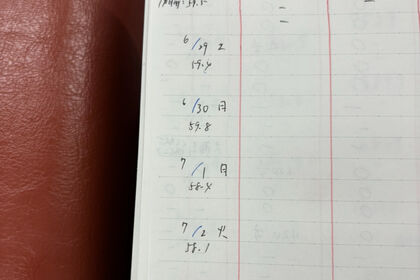 6/29 土
59.4
6/30 日
59.8
7/1 月
58.4
7/2 火
58.1